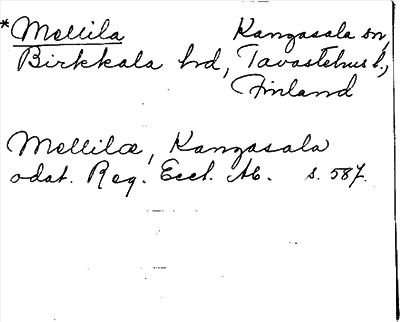 *Mellila Kangasala sn,
Birkkala hd, Tavastehus l.,
Finland
Mellilæ, Kangasala
odat. Reg. Eccl. Ab. s. 587.